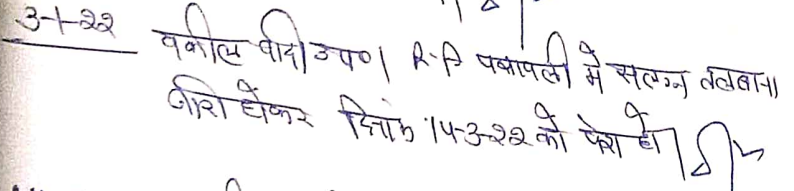 3-1-22 वकील वादी उप० R-P पत्रावली मे सलग्न तलबाना
जारी होकर दिनांक 14-3-22 को पेश हो।